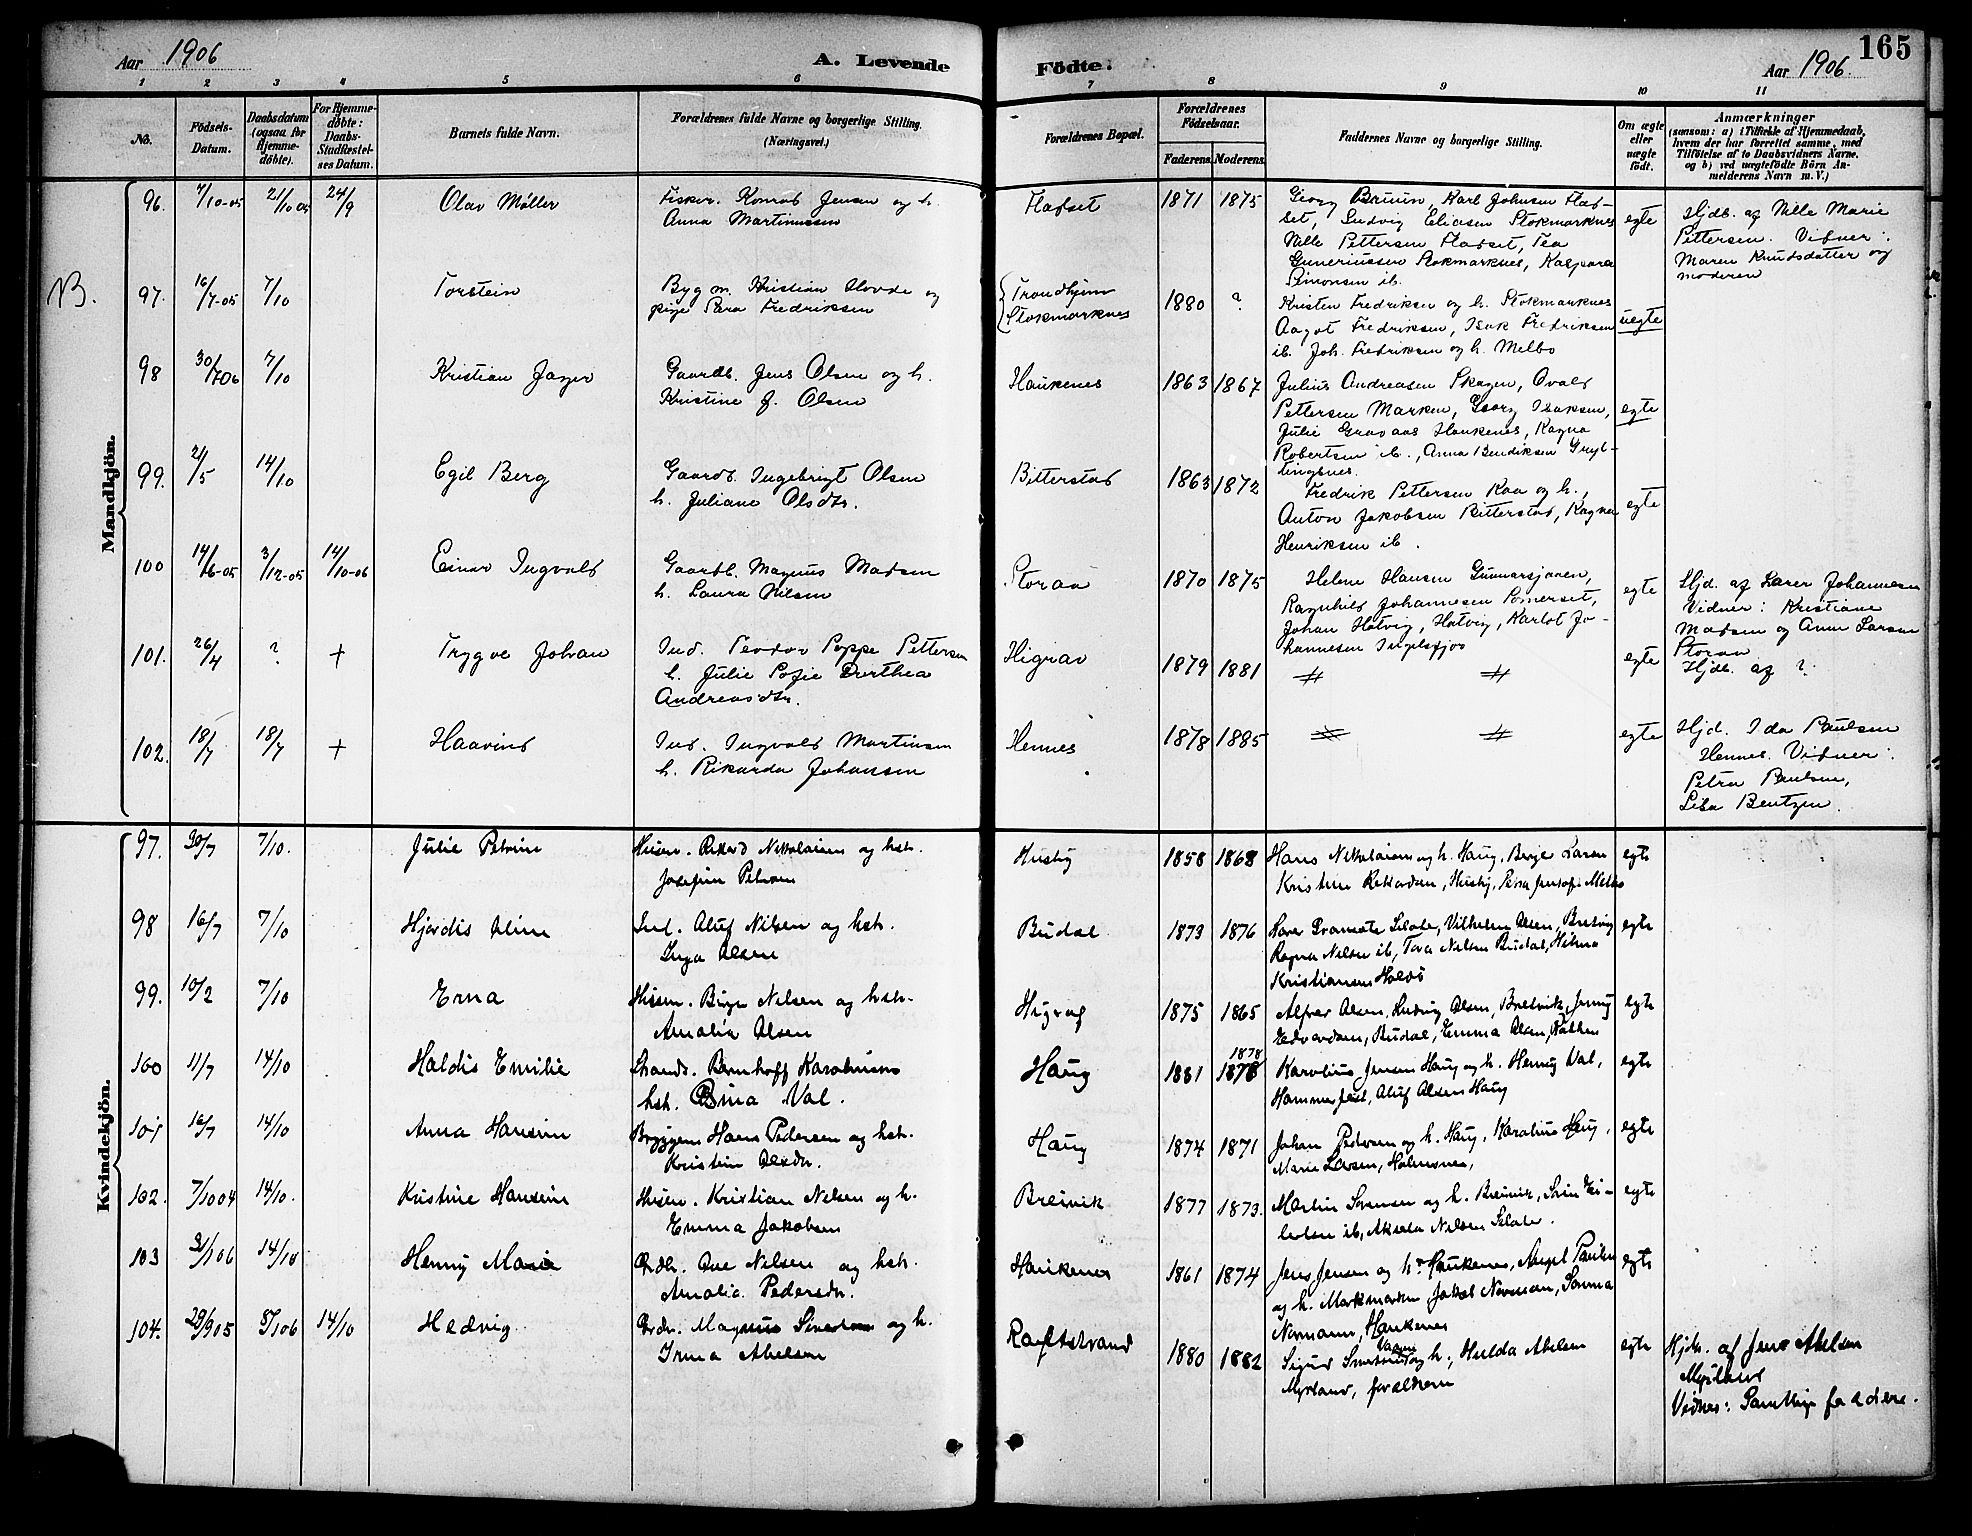 Aar 1906
A. Levende
Födte.
Aar 1906.
165
1 2 3 4 5 6 7 8 9 10 11
No.
Födsels-
Datum.
Daabsdatum
(ogsaa for
Hjemme-
döbte).
For Hjemme-
döbte:
Daabs-
Stadfæstel-
ses Datum.
Barnets fulde Navn.
Forældrenes fulde Navne og borgerlige Stilling.
(Næringsvei.)
Forældrenes Bopæl.
Forældrenes
Födselsaar.
Faderens.
Moderens.
Faddernes Navne og borgerlige Stilling.
Om ægte
eller
uægte
födt.
Anmærkninger
(saasom: a) i Tilfælde af Hjemmedaab,
hvem der har forrettet samme, med
Tilföielse af to Daabsvidners Navne,
og b) ved uægtefödte Börn An-
melderens Navn m. V.)
Mandkjön.
96. 7/10-05 21/10 05 24/9 Olav Møller
Fisker. Konrad Jensen og h.
Anna Martinussen
Fladset 1871 1875
Georg Bruun, Karl Johnsen Flad-
set, Ludvig Eliasen Stokmarknes
Nille Pettersen Fladset, Tea
Guneriussen Stokmarknes, Kaspara
Simonsen ib.
egte
Hjdb. af Nille Marie
Pettersen. Vidner:
Maren Knudsdatter og
moderen
B.
97. 16/7-05 7/10 Torstein
Byg m. Kristian Hovde og
pige Sara Fredriksen
Trondhjem
Stokmarknes
1880 ?
Kristen Fredriksen og h. Stokmarknes
Aagot Fredriksen, Isak Fredriksen
ib. Joh. Fredriksen og h. Melbo
uegte
98 30/7 06 7/10 Kristian Jager
Gaardb. Jens Olsen og h.
Kristine J. Olsen
Haukenes 1863 1867
Julius Andreasen Skagen, Ovald
Pettersen Marken, Georg Isaksen,
Julie Gravaas Haukenes, Ragna
Robertsen ib., Anna Bendiksen Gryt-
tingsnes.
egte
99. 21/5 14/10 Egil Berg
Gaardb. Ingebrigt Olsen
h. Juliane Olsdtr.
Bitterstad 1863 1872
Fredrik Pettersen Kaa og h.,
Anton Jakobsen Bitterstad, Ragna
Henriksen ib.
egte
100 14/6-05 3/12-05 14/10-06 Einar Ingvald
Gaardb. Magnus Madsen
h. Laura Nilsen
Storaa 1870 1875
Helene Hansen Gunnarsjaaen,
Ragnhild Johannesen Somerset,
Johan Hatvig, Hatvig, Karlot Jo-
hannesen Ingelsfjor
egte
Hjd. af Larer Johannesen
Vidner: Kristiane
Madsen og Anna Larsen
Storaa
101. 26/4 ? + Trygve Johan
Ind. Teodor Poppe Pettersen
h. Julie Sofie Dorthea
Andreasdtr.
Higrav 1879 1881
egte
Hjdb. af ?
102. 18/7 18/7 + Haavind
Ind. Ingvald Martinsen
h. Rikarda Johansen
Hennes 1878 1885
egte
Hjd. Ida Paulsen
Hennes. Vidner:
Petra Paulsen,
Lisa Bentzen.
Kvindekjön.
97. 30/7 7/10. Julie Petrine
Husm. Rikard Nikolaisen og hstr.
Josefine Petersen
Husby 1858 1868
Hans Nikolaisen og h. Haug, Berger Larsen
Kristine Rikardsen, Husby, Petra Jensofie Melbo
egte
98 16/7 7/10 Hjördis Aline
Ind. Aluf Nilsen og hstr.
Inga Olsen
Budal 1873 1876
Ragna Nilsen ib, Tora Nilsen Budal, Helma
Kristiansen Holdö
egte
99. 10/2 7/10 Erna
Husm. Birger Nilsen og hstr.
Amalia Olsen
Higrav 1875 1865
Alfred Olsen, Ludvig Olsen, Breivik, Jenny
Edvardsen, Budal, Emma Olsen,
egte
100 11/7 14/10 Haldis Emilie
Strands. Bernhoff Karolinius
hstr. Dina Val.
Haug 1881 1878
1878
Karolius Jensen Haug og h. Henny Val,
Hammerfest, Aluf Olsen Haug
egte
101 16/7 14/10 Anna Hansine
Bryggem Hans Pedersen og hstr.
Kristine Olsdtr.
Haug 1874 1871
Johan Pedersen og h. Haug, Karolius Haug,
Marie Larsen, Holmsnes,
egte
102. 7/10 04 14/10. Kristine Hansine
Husm. Kristian Nilsen og h.
Emma Jakobsen
Breivik 1877 1873.
Martin Sørensen og h. Breivik, Sörin Ei-
lertsen ib, Aksela Nilsen Selater.
egte
103 31/1 06 14/10 Henny Marie
Grdb. Ove Nilsen og hstr.
Amalia Pedersdr.
Haukenes 1861 1874
Jens Jensen og h. Haukenes, August Paulsen
og h. Markmarken Jakob Normann, Sanna
Normann, Haukenes
egte
104. 29/9 05 5/1 06 14/10 Hedvig
Grdr. Magnus Sivertsen og h.
Irma Abelsen
Raftstrand 1880 1882
Sigurd Sivertsen og h., Hulda Abelsen
Myrland, forældrene
egte
Hjdb. af Jens Abelsen
Myrland
Vidner: Samtlige faddere.